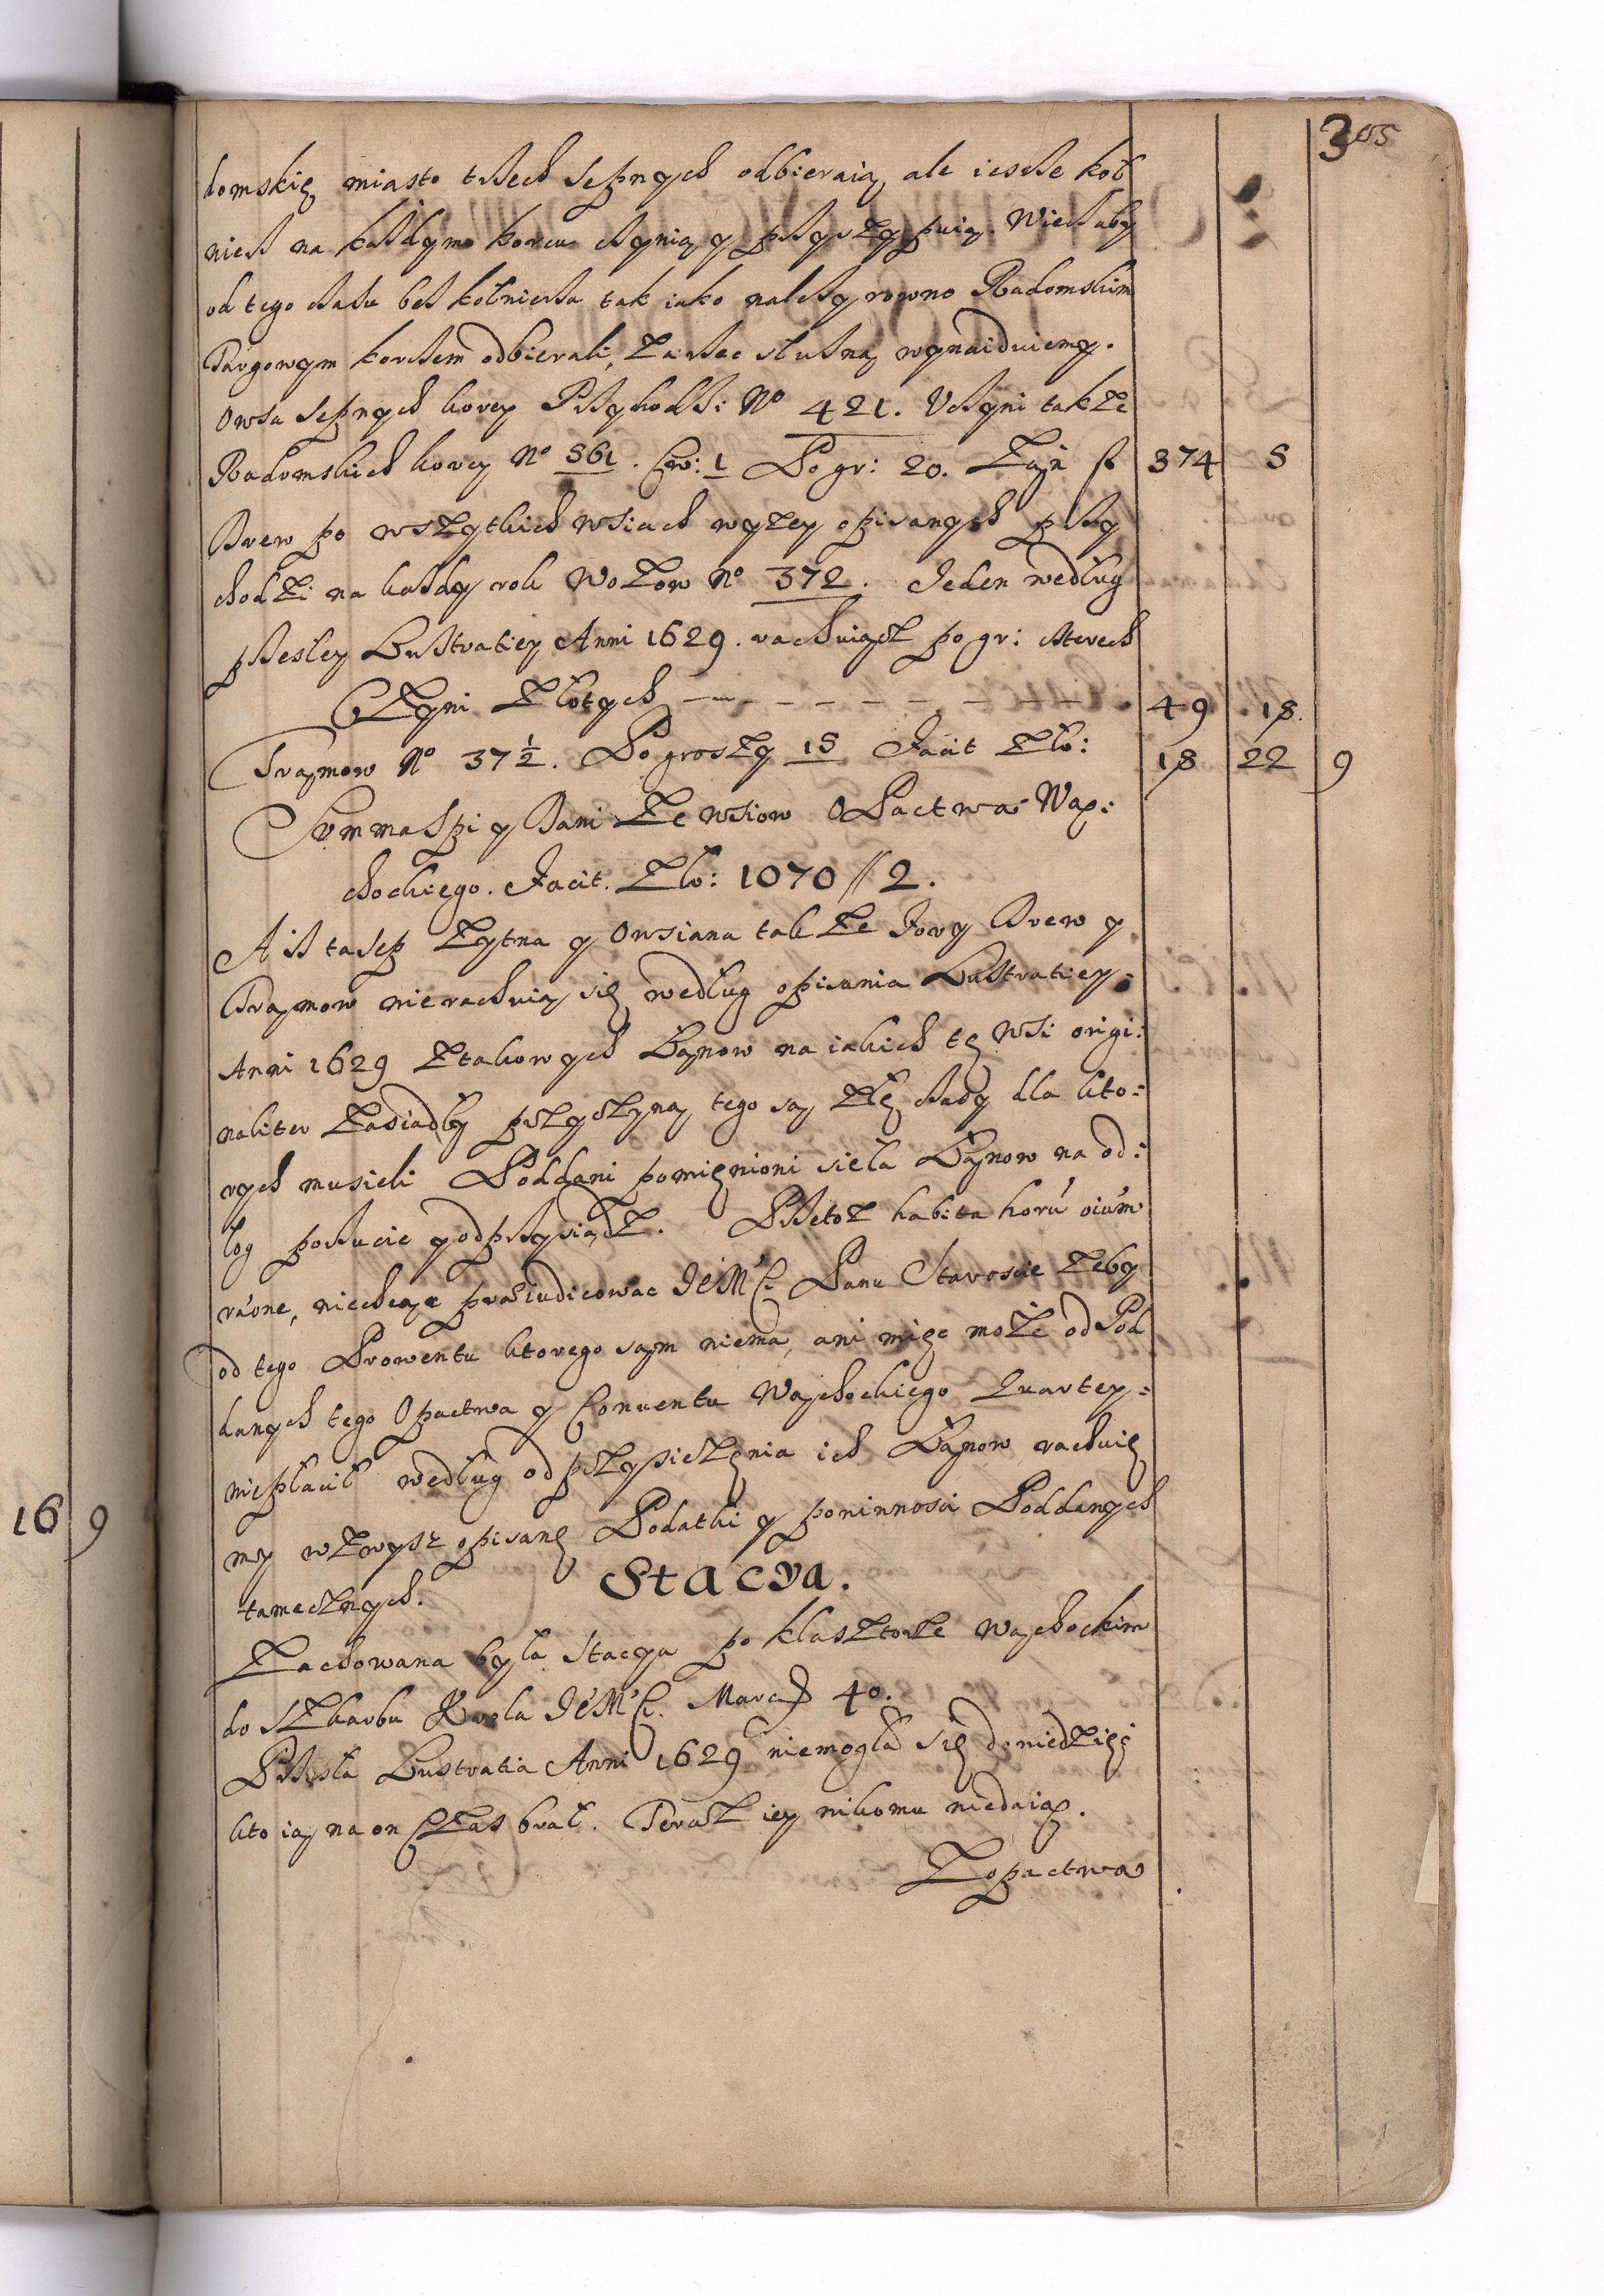 305
domskię miasto trzech sepnych odbieraią, ale ieszcze koł
nierz na każdym korcu czynią y przysypuią. Wiec aby
od tego czasu bez kołnierza tak iako należy rowno Radomskim
Targowym korcem odbierali, za rzec słuszną wynaiduiemy.
Owsa sepnych korcy Przychodzi No 421. Uczyni takze
Radomskich korcy No 561. Cwi: 1 Po gr: 20. Facit fl 374 5
Drew po wszytkich wsiach wyzey opisanych przy
chodzi na kazdy rok Wozow No 372. Jeden według
przeszłey Lustratiey Anni 1629. rachuiącz po gr: czterech
Czyni Złotych — — — — — — — — 49 18.
Tramow No 37½. Po groszy 15 Facit Zło: 18 22 9
Summa Spi y Dani ze wsiow OPactwa Wąp:
chockiego. Facit. Zło: 1070 // 2.
A iz ta sep zytna y owsiana takze Fory Drew y
Tramow nie rachuią się według opisania Lustratiey
Anni 1629 z takowych Łanow na iakich tę wsi origi:
naliter zasiadły przyczyną tego są złę czasy dla kto:
rych musieli Poddani pomienioni siela Łanow na od:
log porzucic y odprzysiądz. Przetoz habita horú oiúm
rãone, niechcąc praeiudicowac JéMC. Panu Staroscie zeby
od tego Prowentu ktorego sam niema, ani miec może od Pod
danych tego Opactwa y Conuentu Wąchockiego Quartey
niepłacił według odprzysięzenia ich Łanow rachuię
my wzwysz opisanę Podatki y powinnosci Poddanych
tamecznych.
Stacya.
Zachowana była stacya po klasztorze Wąchockim
do Skarbu Krola JéMC. Marcy 40.
Przeszła Lustratia Anni 1629 niemogła się doniedziec
kto ią na on czas brał. Terasz iey nikomu niedaią.
Z opactwa
16 9